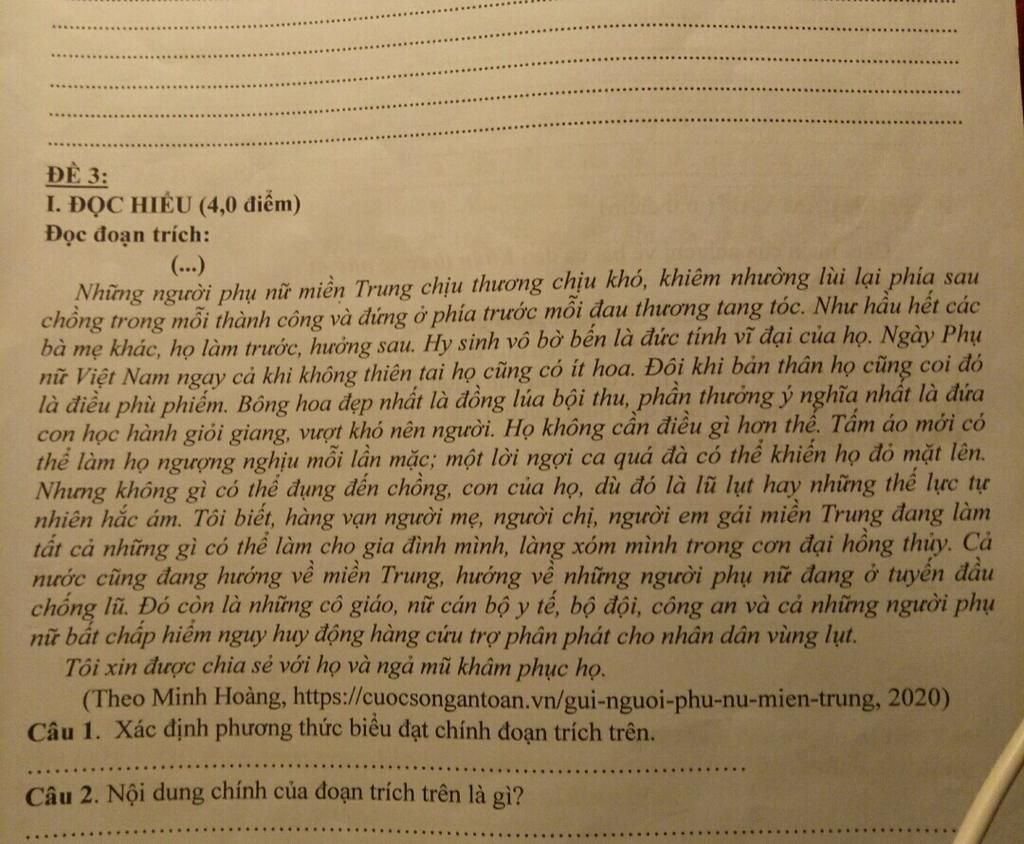 ĐỀ 3:
I. ĐỌC HIỂU (4,0 điểm)
Đọc đoạn trích:
(...)
Những người phụ nữ miền Trung chịu thương chịu khó, khiêm nhường lùi lại phía sau
chồng trong mỗi thành công và đứng ở phía trước mỗi đau thương tang tóc. Như hầu hết các
bà mẹ khác, họ làm trước, hưởng sau. Hy sinh vô bờ bến là đức tính vĩ đại của họ. Ngày Phụ
nữ Việt Nam ngay cả khi không thiên tai họ cũng có ít hoa. Đôi khi bản thân họ cũng coi đó
là điều phù phiếm. Bông hoa đẹp nhất là đồng lúa bội thu, phần thưởng ý nghĩa nhất là đứa
con học hành giỏi giang, vượt khó nên người. Họ không cần điều gì hơn thế. Tấm áo mới có
thể làm họ ngượng nghịu mỗi lần mặc; một lời ngợi ca quá đà có thể khiến họ đỏ mặt lên.
Nhưng không gì có thể đụng đến chồng, con của họ, dù đó là lũ lụt hay những thế lực tự
nhiên hắc ám. Tôi biết, hàng vạn người mẹ, người chị, người em gái miền Trung đang làm
tất cả những gì có thể làm cho gia đình mình, làng xóm mình trong cơn đại hồng thủy. Cả
nước cũng đang hướng về miền Trung, hướng về những người phụ nữ đang ở tuyến đầu
chống lũ. Đó còn là những cô giáo, nữ cán bộ y tế, bộ đội, công an và cả những người phụ
nữ bất chấp hiểm nguy huy động hàng cứu trợ phân phát cho nhân dân vùng lụt.
Tôi xin được chia sẻ với họ và ngả mũ khâm phục họ.
(Theo Minh Hoàng, https://cuocsongantoan.vn/gui-nguoi-phu-nu-mien-trung, 2020)
Câu 1. Xác định phương thức biểu đạt chính đoạn trích trên.
Câu 2. Nội dung chính của đoạn trích trên là gì?